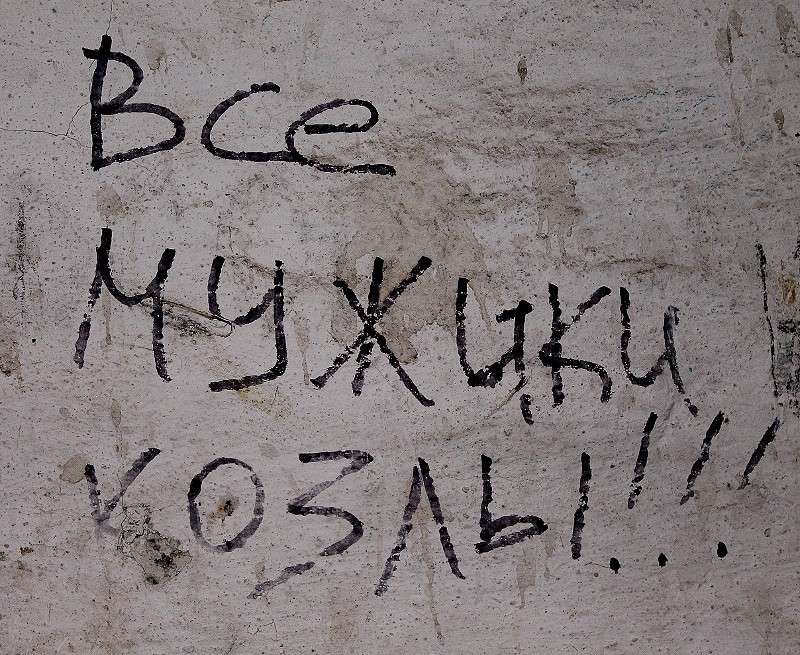 Все
мужики
козлы!!!